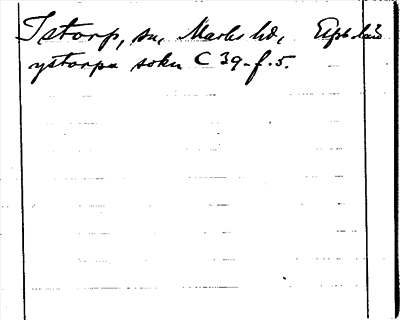 Istorp, sn, Marks hd, Elfsb. län
ystorpa sokn C 39-f.5.